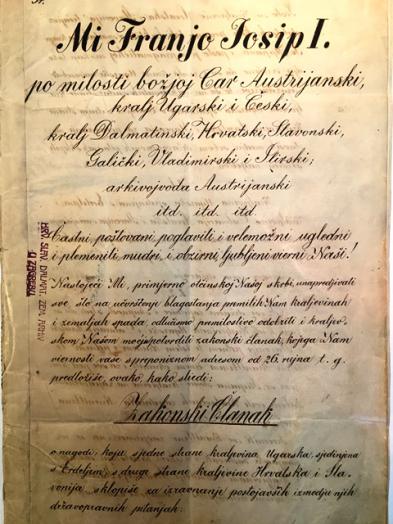 Mi Franjo Josip I.
po milosti božjoj Car Austrijanski,
kralj Ugarski i Česki,
kralj Dalmatinski, Hrvatski, Slavonski,
Galički, Vladimirski i Ilirski;
arkivojvoda Austrijanski
itd. itd. itd.
Častni, poštovani, poglaviti i velemožni, ugledni
i plemeniti, mudri, i obzirni, ljubljeni vierni Naši!
Nastojeći Mi, primjerno otčinskoj Našoj skrbi, unapredjivati
sve što na učvršćenje blagostanja premilih Nam kraljevinah
i zemaljah spada, odlučismo premilostivo odobriti i kraljev-
skom Našom moćju potvrditi zakonski članak, kojega Nam
viernosti vaše sa preponiznom adresom od 26. rujna t. g.
predložiše, ovako, kako sliedi:
Zakonski Članak
o nagodi, koju s jedne strane kraljevina Ugarska, sjedinjena
s Erdeljem, s druge strane kraljevine Hrvatska i Sla-
vonija, sklopiše za izravnanje postojavših izmedju njih
državopravnih pitanjah.
HRV. SLAV. DALMAT. ZEM. ARKIV
U ZAGREBU